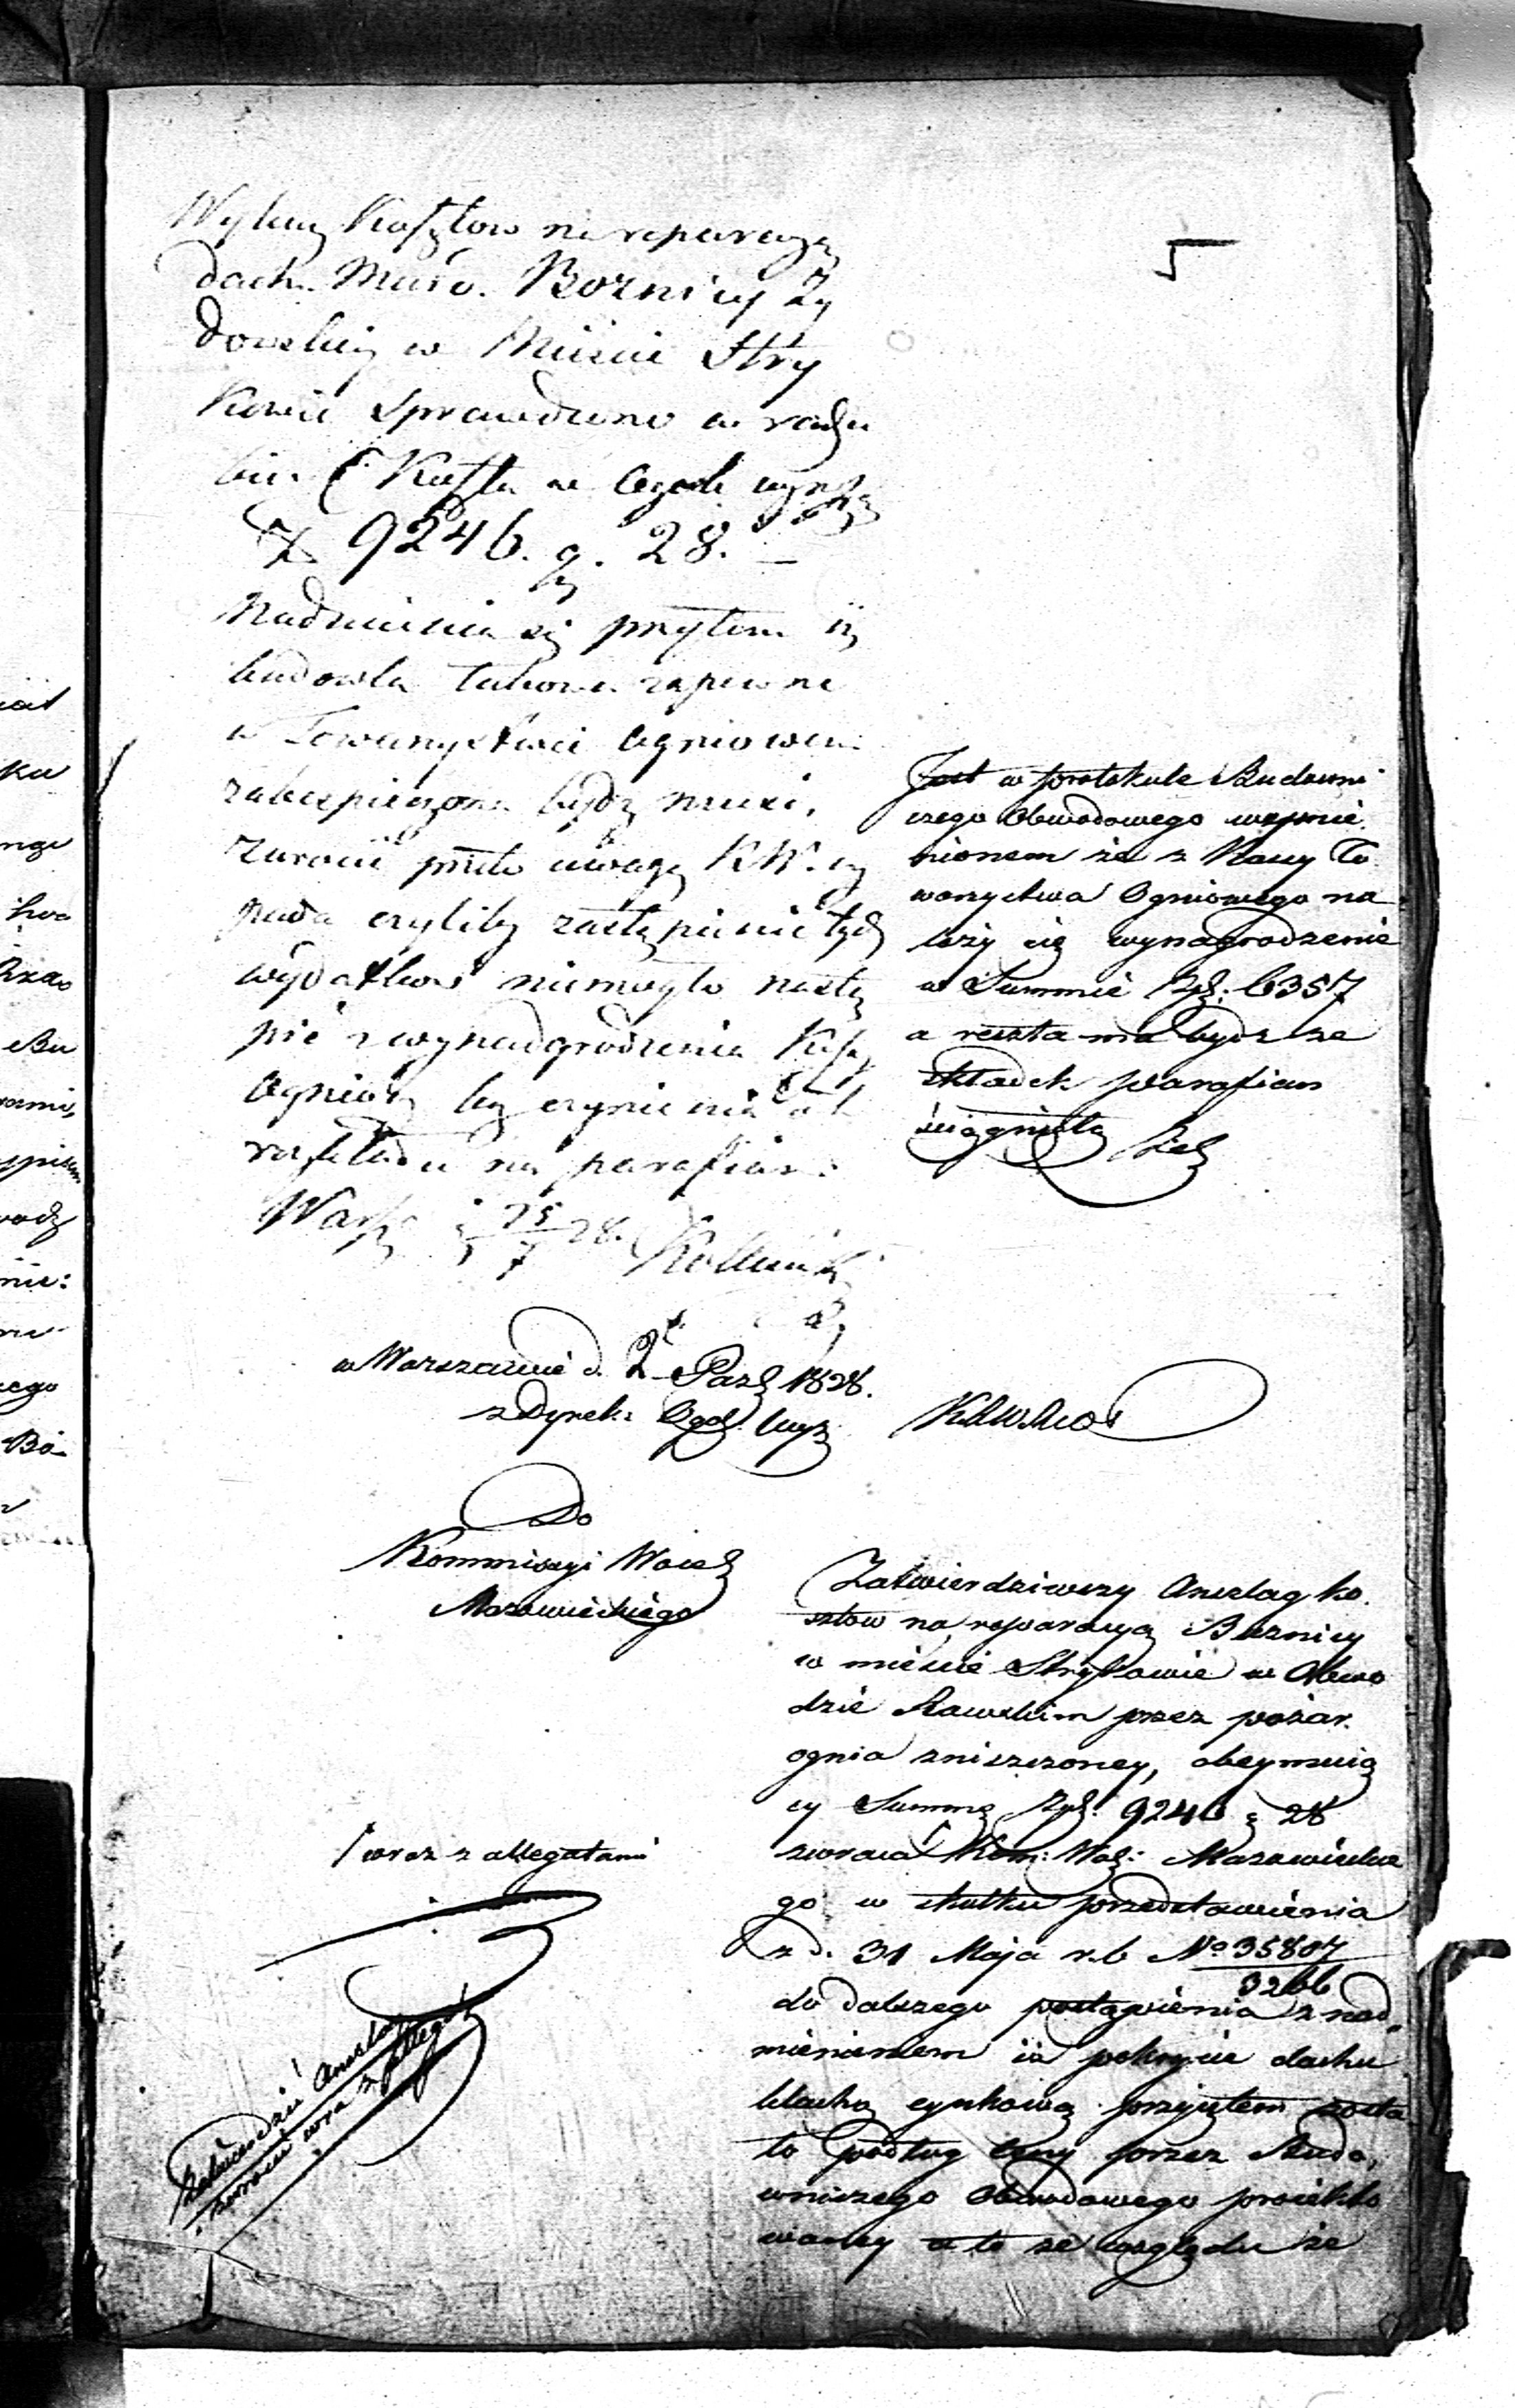 5
Wykaz Kosztow na reparacyą
dachu Muro. Boznicy Zy
dowskiey w Miescie Stry
kowie sprawdzono w rachu
bie. Koszta w Ogole wynoszą
Z 9246. g. 28. —
Nadmienia się przytem iż
budowla takowa zapewne
w Towarzystwie Ogniowem
zabezpieczona bydź musi,
zwrocić przeto uwagę KW. wy
pada czyliby zastąpienie tych
wydatkow niemogło nastą
pić z wynadgrodzenia Kassy
Ogniowey bez czynienia
rozkładu na parafian.
Warsz 25/7 28.
Jest w protokule Budowni
czego Obwodowego wspomnie
nionem że z Kassy To
warzystwa Ogniowego na
leży się wynagrodzenie
w Summie Zpł: 6357
a reszta ma bydz ze
składek parafian
ściągnięta
w Warszawie d. 2 Paźd 1828.
z Dyrek: Ogol.
Do
Kommissyi Woiew
Mazowieckiego
Zatwierdziwszy Anszlag ko
sztow na reparacyą Boznicy
w mieście Strykowie w Obwo
dzie Rawskim przez pożar
ognia zniszczoney, obeymuią
cy Summę Zpł. 9246 g 28
/ wraz z allegatami
zwraca / Kom: Woj: Mazowieckie
go w skutku przedstawienia
z d. 31 Maja r.b No 35807
3266
do dalszego postąpienia z nad
mienieniem iż pokrycie dachu
blachą cynkową przyjętem zosta
ło podług ceny przez Budo
wniczego Obwodowego proiekto
waney a to ze względu że
Zatwierdzić Anszlag
zwrocić wraz z allegat